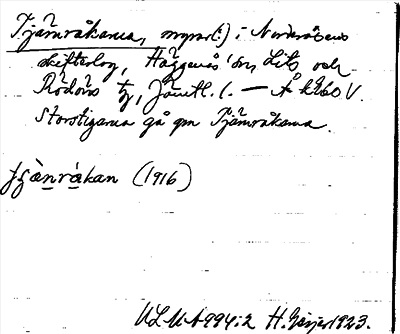 Tjärnråkarna, myrar(:) i Norderåsens
skifteslag, Häggenås sn, Lits och
Rödöns tg, Jämtl. l. — Å k260 V.
Storstigarna gå gm Tjärnråkarna.
(1916)
ULMA 994:2 H. Geijer 1923.